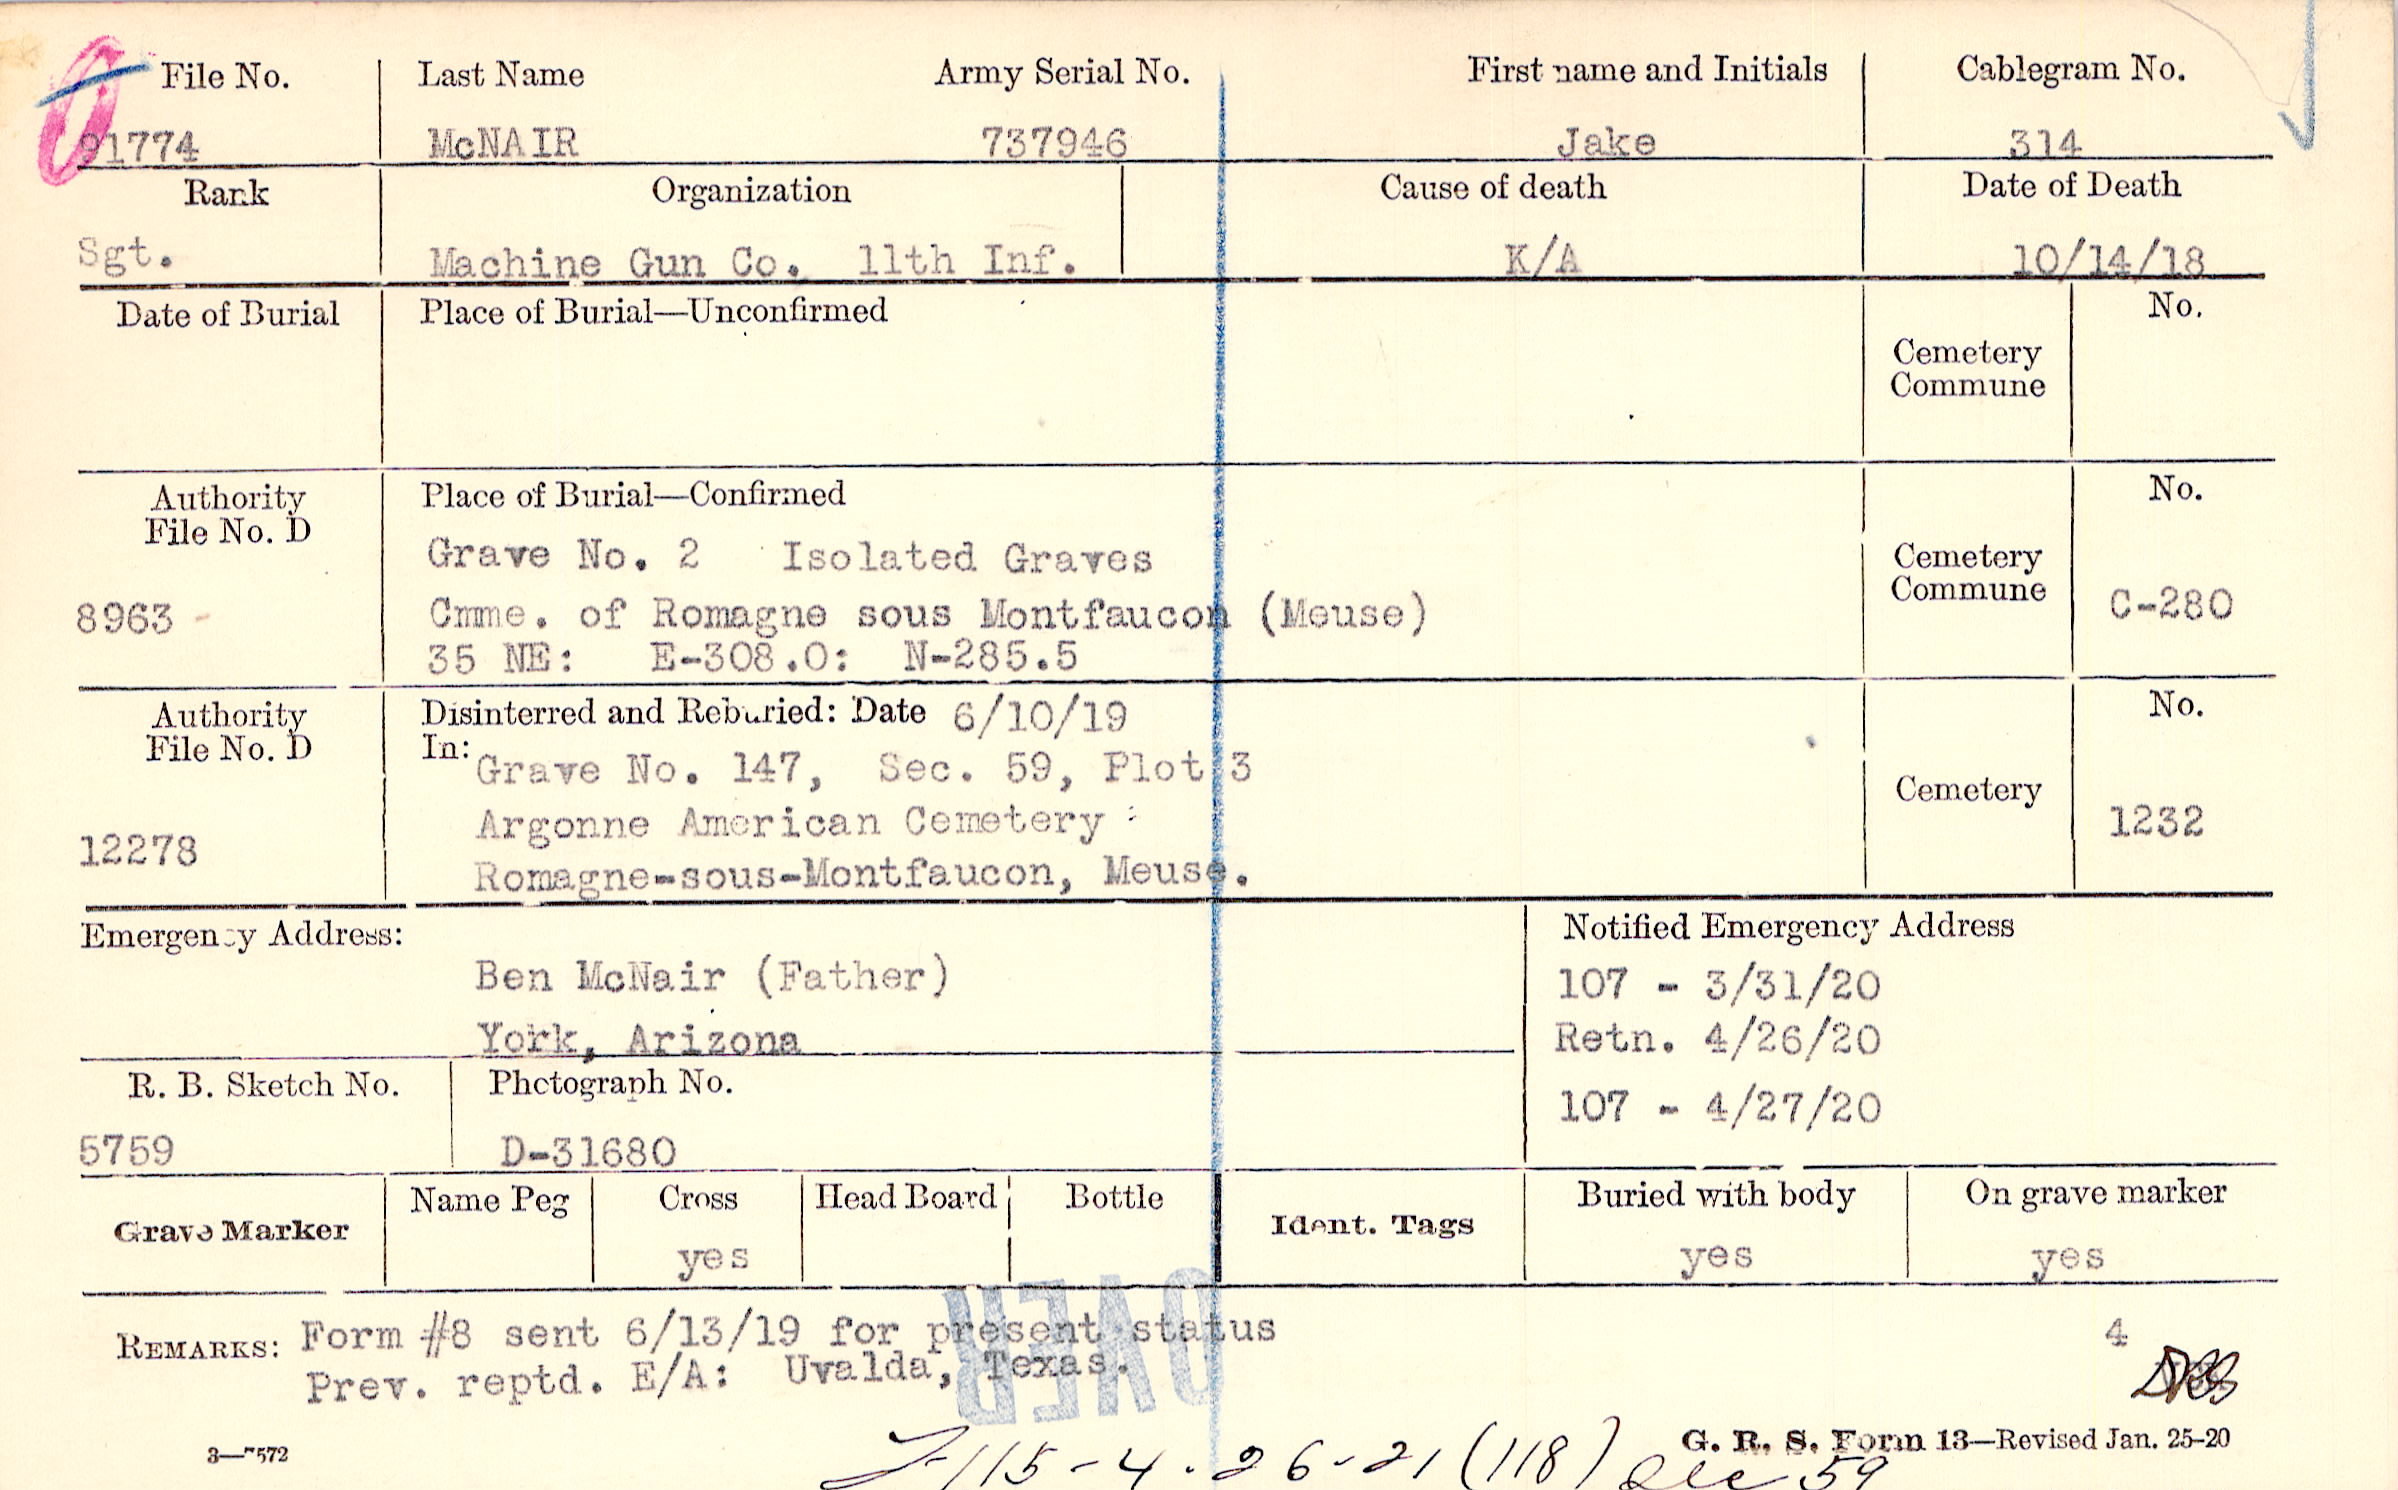 File No. Last Name Army Serial No. First name and Initials Cablegram No.
91774 McNAIR 737946 Jake 314
Rank Organization Cause of death Date of Death
Sgt. Machine Gun Co. 11th Inf. K/A 10/14/18
Date of Burial Place of Burial—Unconfirmed No.
Cemetery
Commune
Authority Place of Burial—Confirmed No.
File No. D
Grave No. 2 Isolated Graves Cemetery
Commune
8963 Cmme. of Romagne sous Montfaucon (Meuse) C-280
35 NE: E-308.0: N-285.5
Authority Disinterred and Reburied: Date 6/10/19 No.
File No. D In:
Grave No. 147, Sec. 59, Plot 3
Cemetery
12278 Argonne American Cemetery 1232
Romagne-sous-Montfaucon, Meuse.
Emergency Address: Notified Emergency Address
Ben McNair (Father) 107 - 3/31/20
York, Arizona Retn. 4/26/20
R. B. Sketch No. Photograph No. 107 - 4/27/20
5759 D-31680
Grave Marker Name Peg Cross Head Board Bottle Ident. Tags Buried with body On grave marker
yes yes yes
REMARKS: Form #8 sent 6/13/19 for present status 4
Prev. reptd. E/A: Uvalda, Texas.
OVER
3—7572 G. R. S. Form 13—Revised Jan. 25-20
115-4-26-21 (118) 59